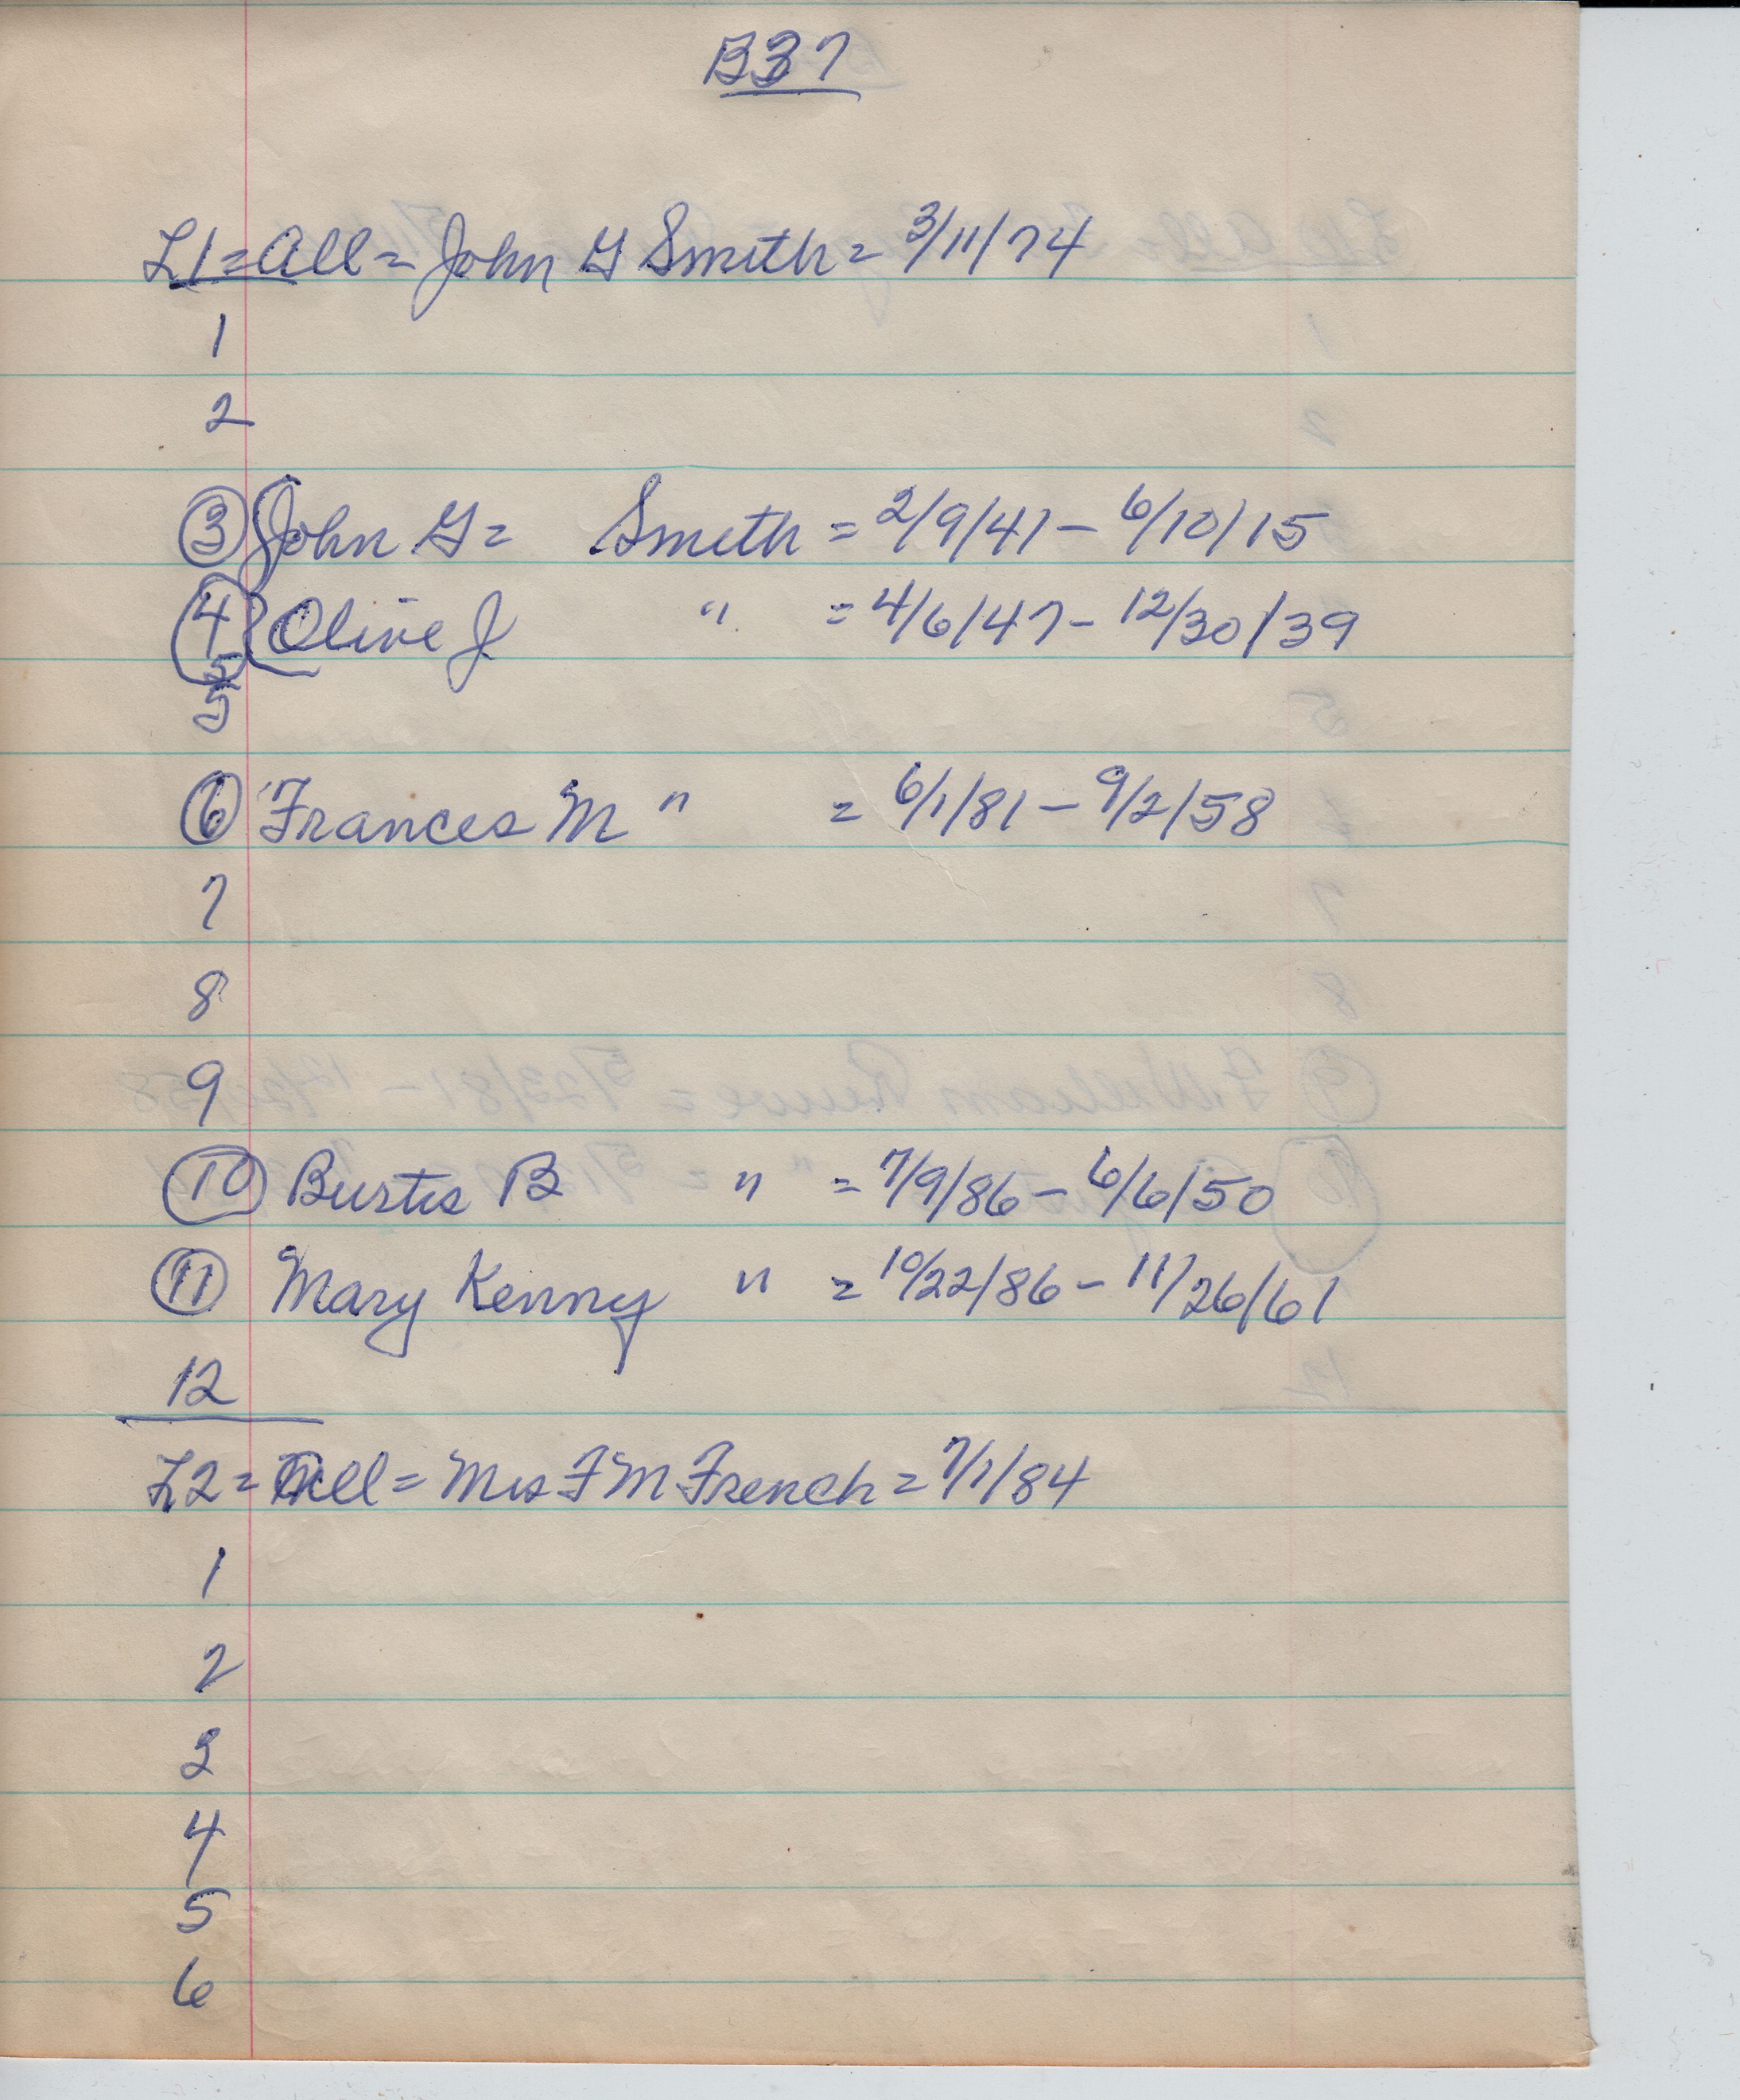 B37
L1=All=John G Smith=3/11/74
1
2
3 John G= Smith=2/9/41-6/10/15
4 Olive J " =4/6/47-12/30/39
5
5
6 Frances M " =6/1/81-9/2/58
7
8
9
10 Burtis B " =7/9/86-6/6/50
11 Mary Kenny " =10/22/86-11/26/61
12
L2=All=Mrs F M French=7/1/84
1
2
3
4
5
6